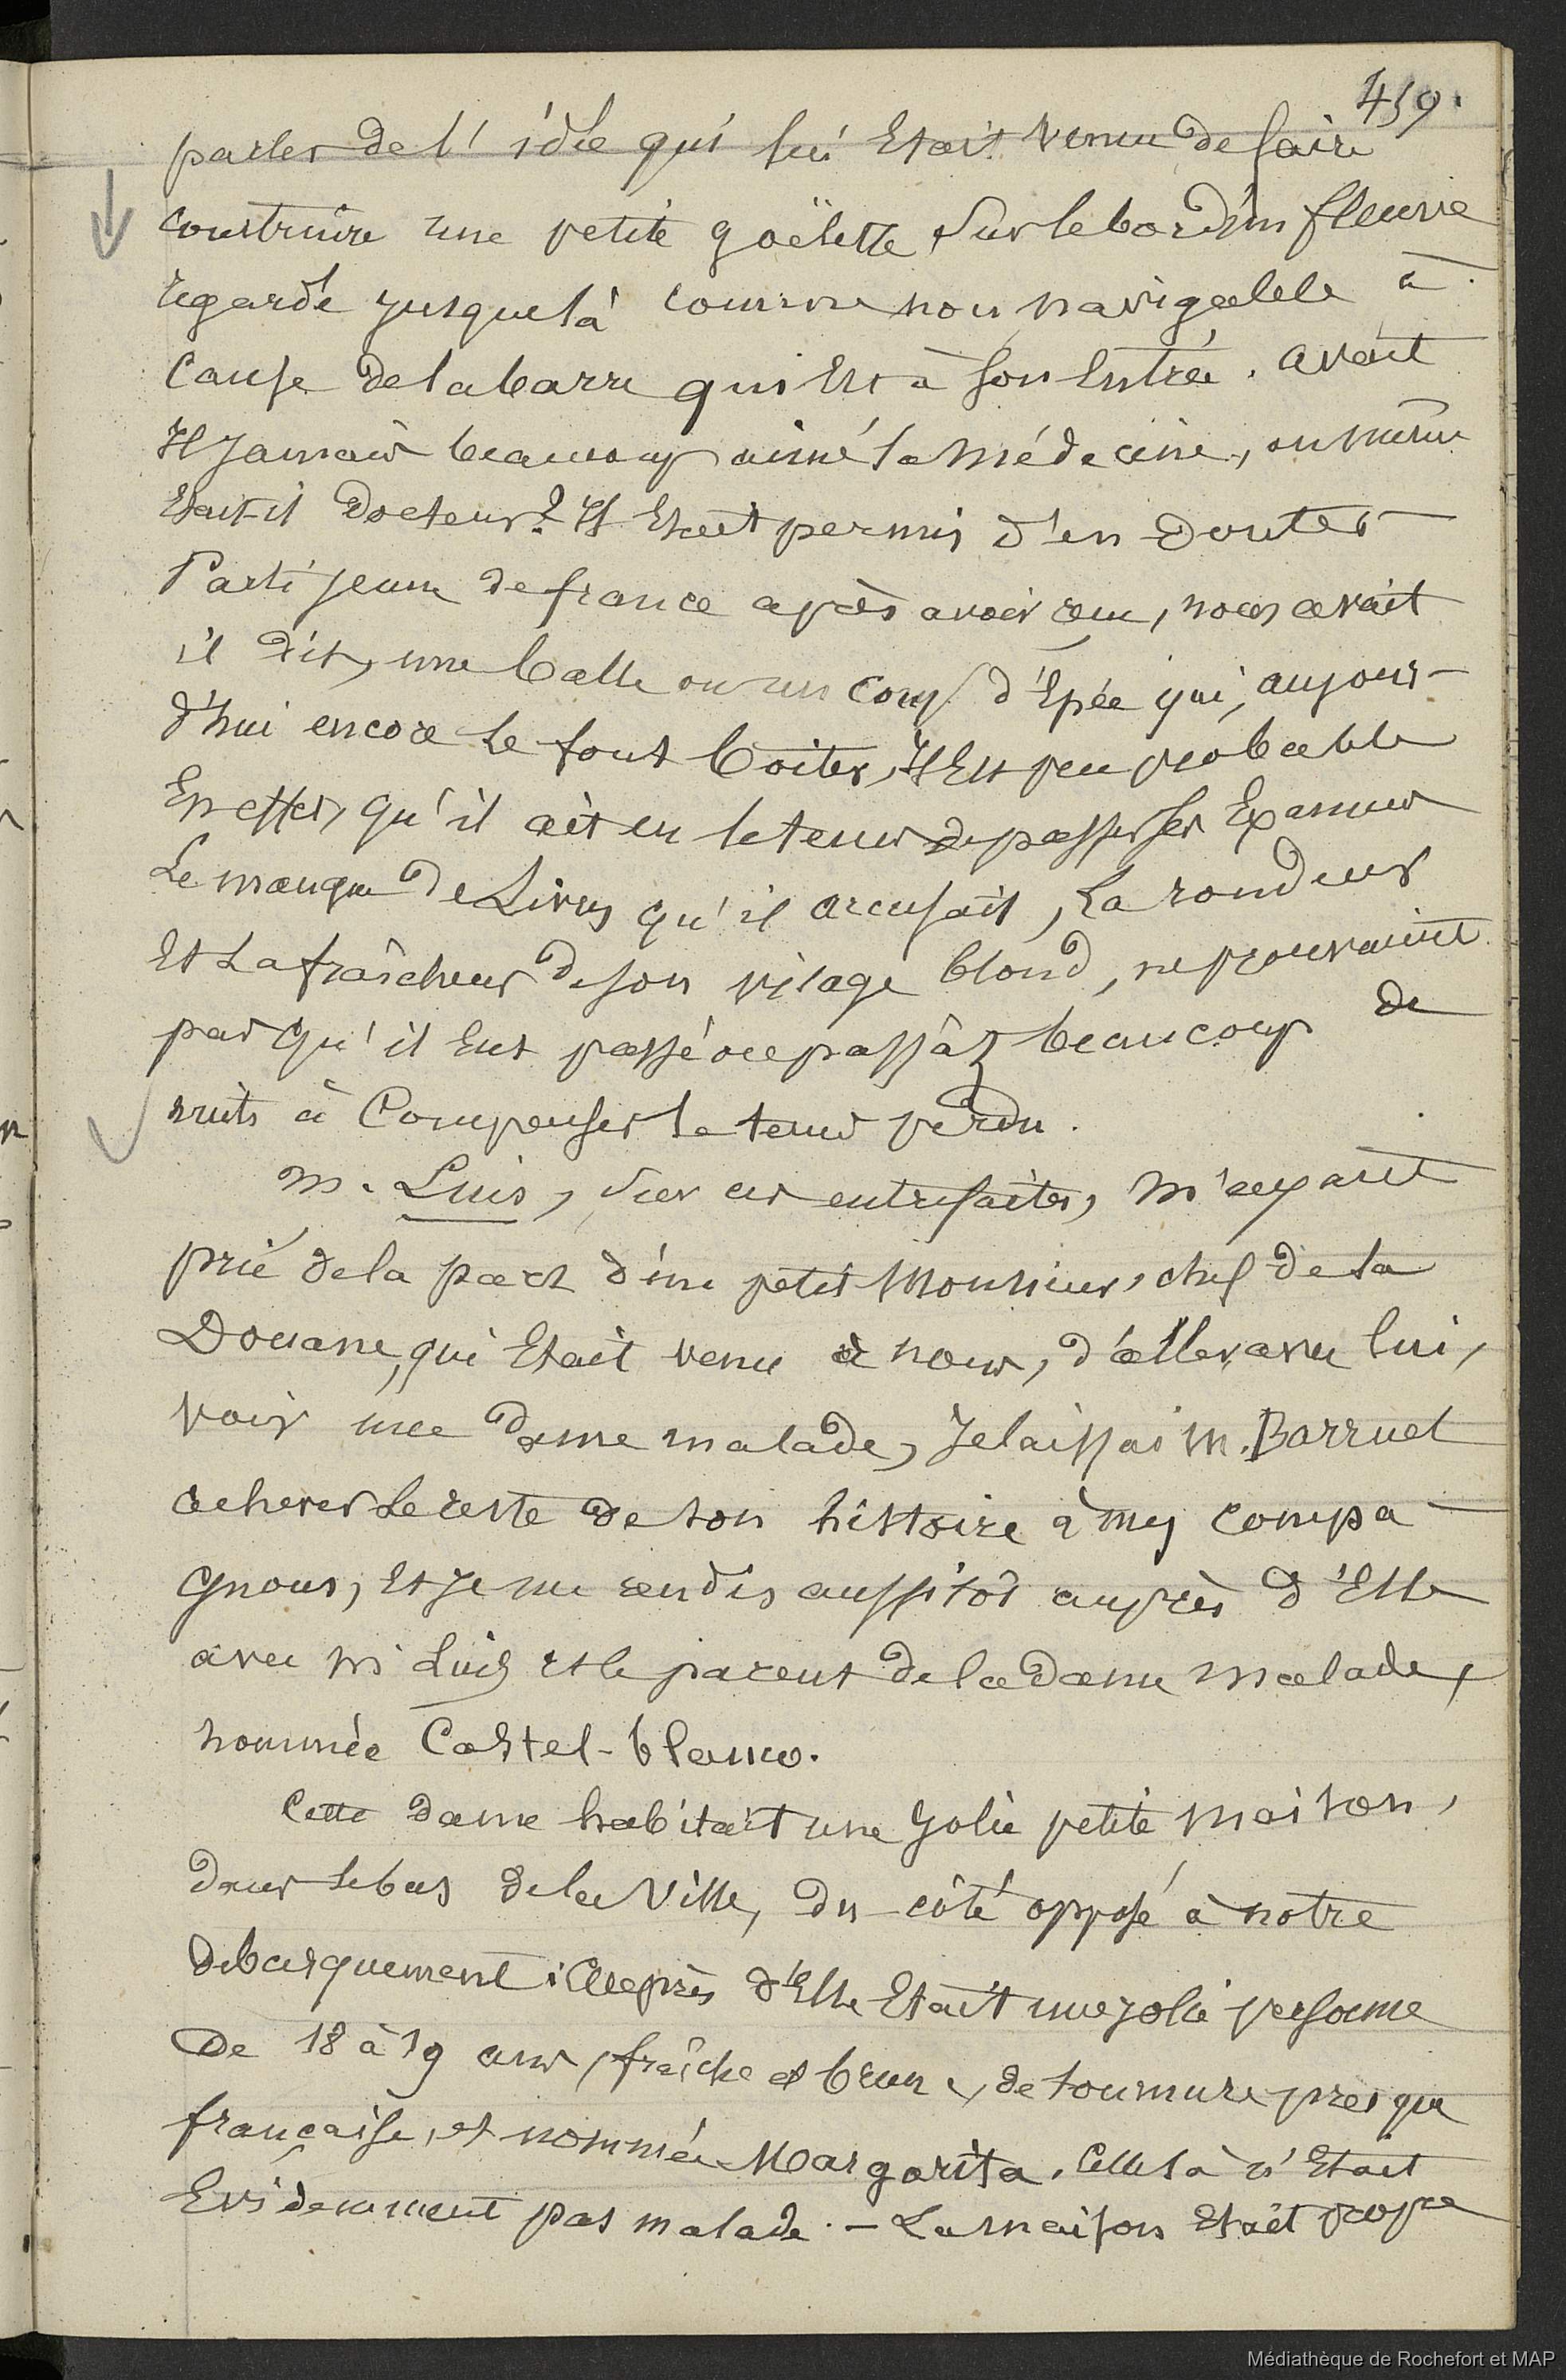 459.
parler de l'idée qui lui Etait venue de faire
construire une petite goëlette sur le bord d'un fleuve
regardé jusque là comme non navigable à
cause de la barre qui Est à son Entrée. avait
Il jamais beaucoup aimé la Médecine, ou même
Etait-il Docteur? Il Etait permis d'en Douter
Parti jeune de france après avoir reçu, nous avait
il dit, une balle ou un coup d'Epée qui, aujour-
d'hui encore le font boiter, Il Est peu probable
En effet, qu'il ait eu le tems de passer ses Examens
Le manque de Livres qu'il accusait, La rondeur
Et La fraîcheur de son visage blond, ne prouvaient
pas qu'il Eut passé ou passât beaucoup de
nuits à Compenser le tems perdu.
M. Luis, sur ces entrefaites, m'ayant
prié de la part d'un petit Monsieur, chef de la
Douane, qui Etait venu à nous, d'aller avec lui,
voir une dame malade, Je laissai M. Barruel
achever Le reste de son histoire à mes compa-
gnons, Et Je me rendis aussitôt auprès d'Elle
avec M. Luis et le parent de la Dame malade,
nommée Castel-blanco.
Cette dame habitait une Jolie petite maison,
dans le bas de la Ville, du côté opposé à notre
debarquement. Auprès d'Elle Etait une jolie personne
De 18 à 19 ans, fraîche et brune, de tournure presque
française, et nommée Margarita. Celle là n'Etait
Evidemment pas malade. - La maison Etait propre
Médiathèque de Rochefort et MAP